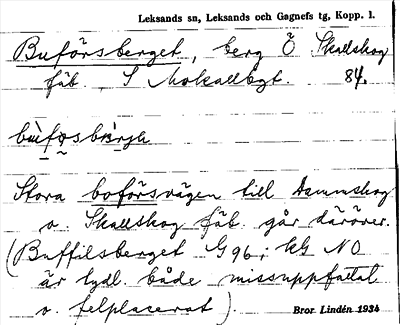 Leksands sn, Leksands och Gagnefs tg, Kopp. l.
Buförsberget, berg Ö Skallskog
fäb., S Mokallbgt. 84.
Stora boförsvägen till Dammskog
o. Skallskog fäb. går däröver.
(Buffilsberget G96; kG NO
är tydl. både missuppfattat
o. felplacerat).
Bror Lindén 1934